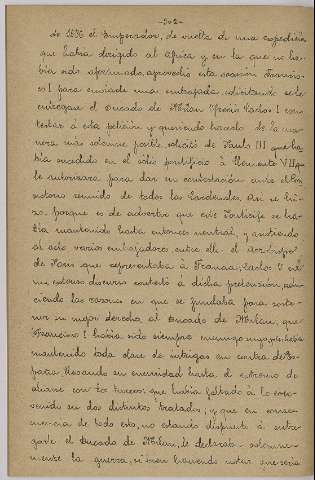 -302-
de 1536 el Emperador, de vuelta de una expedición
que había dirigido al Africa y en la que no ha-
bía sido afortunado, aprovechó esta ocasión Francis-
co I para enviarle una embajada solicitando se le
entregara el Ducado de Milan. Carlos I con-
testar á esta petición y queriendo hacerlo de la ma-
nera más solemne posible, solicitó de Paulo III que ha-
bía sucedido en el sólio pontificio á Clemente VII que
le autorizara para dar su contestación ante el Con-
sistorio reunido de todos los Cardenales. Así se hi-
zo, porque es de advertir que este Pontífice se ha-
bía mantenido hasta entonces neutral, y asistiendo
al acto varios embajadores, entre ellos el
de París que representaba á Francia, Carlos V en
un extenso discurso contestó á dicha pretensión, adu-
ciendo las razones en que se fundaba para soste-
ner su mejor derecho al Ducado de Milan, que
Francisco I había sido siempre enemigo suyo, que había
mantenido toda clase de intrigas en contra de Es-
paña llevando su enemistad hasta el extremo de
aliarse con los turcos; que había faltado á lo con-
venido en dos distintos tratados, y que en conse-
cuencia de todo esto, no estando dispuesto á entre-
garle el Ducado de Milan, le declaraba solemne-
mente la guerra, si bien haciendo notar que sería